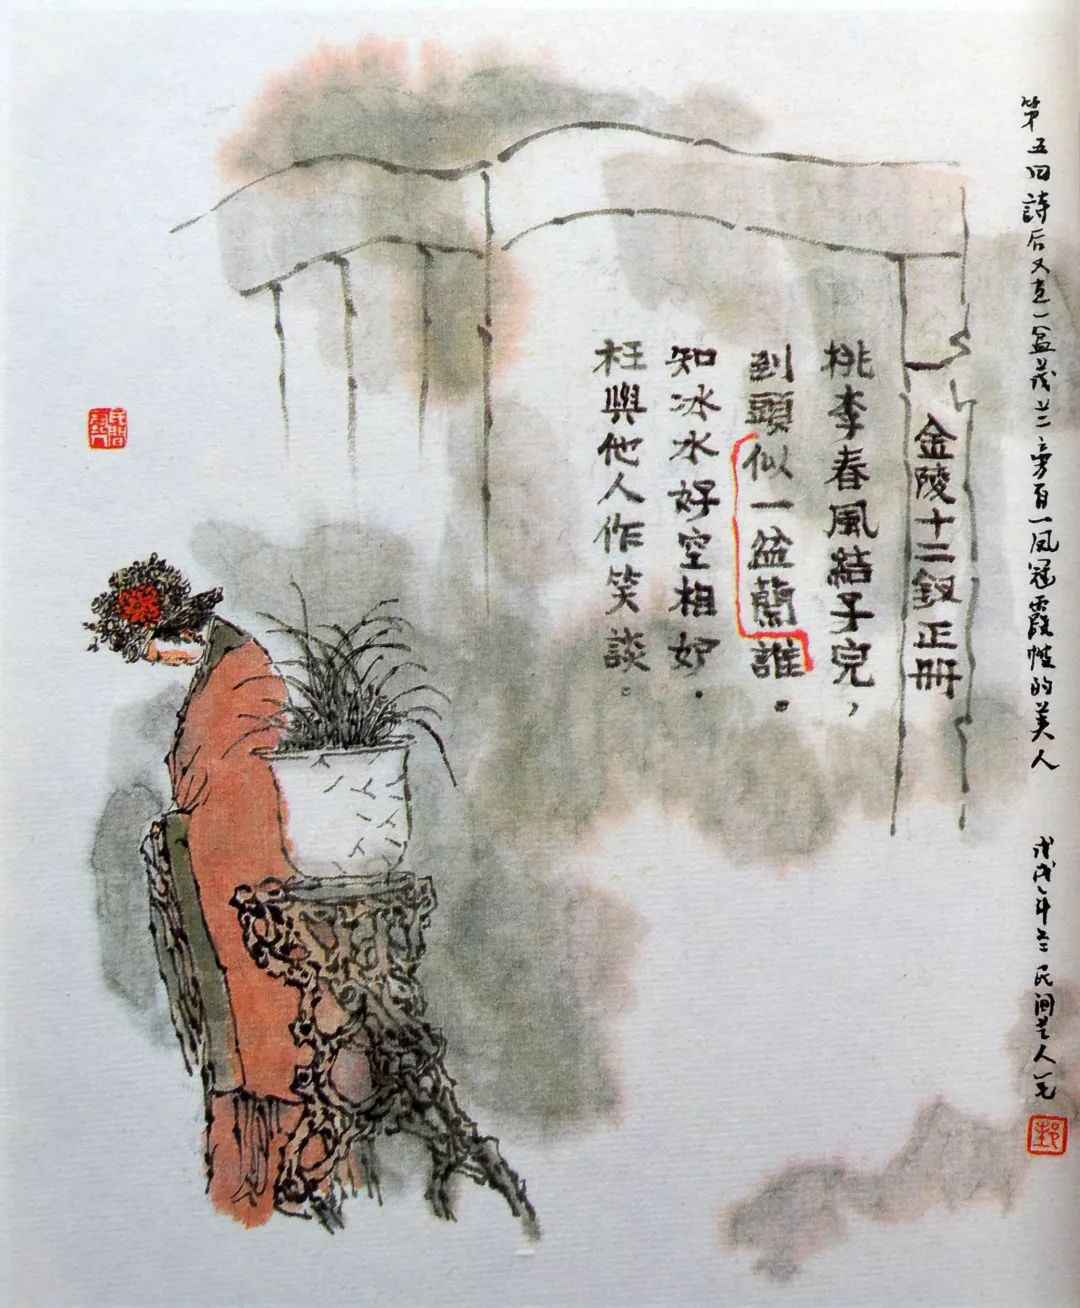 第五回詩后又画一盆茂兰旁有一凤冠霞帔的美人
戊戌年 民间艺人
金陵十二釵正冊
桃李春風結子完，
到頭似一盆蘭誰。
知冰水好空相妒.
枉與他人作笑談。
民間藝人